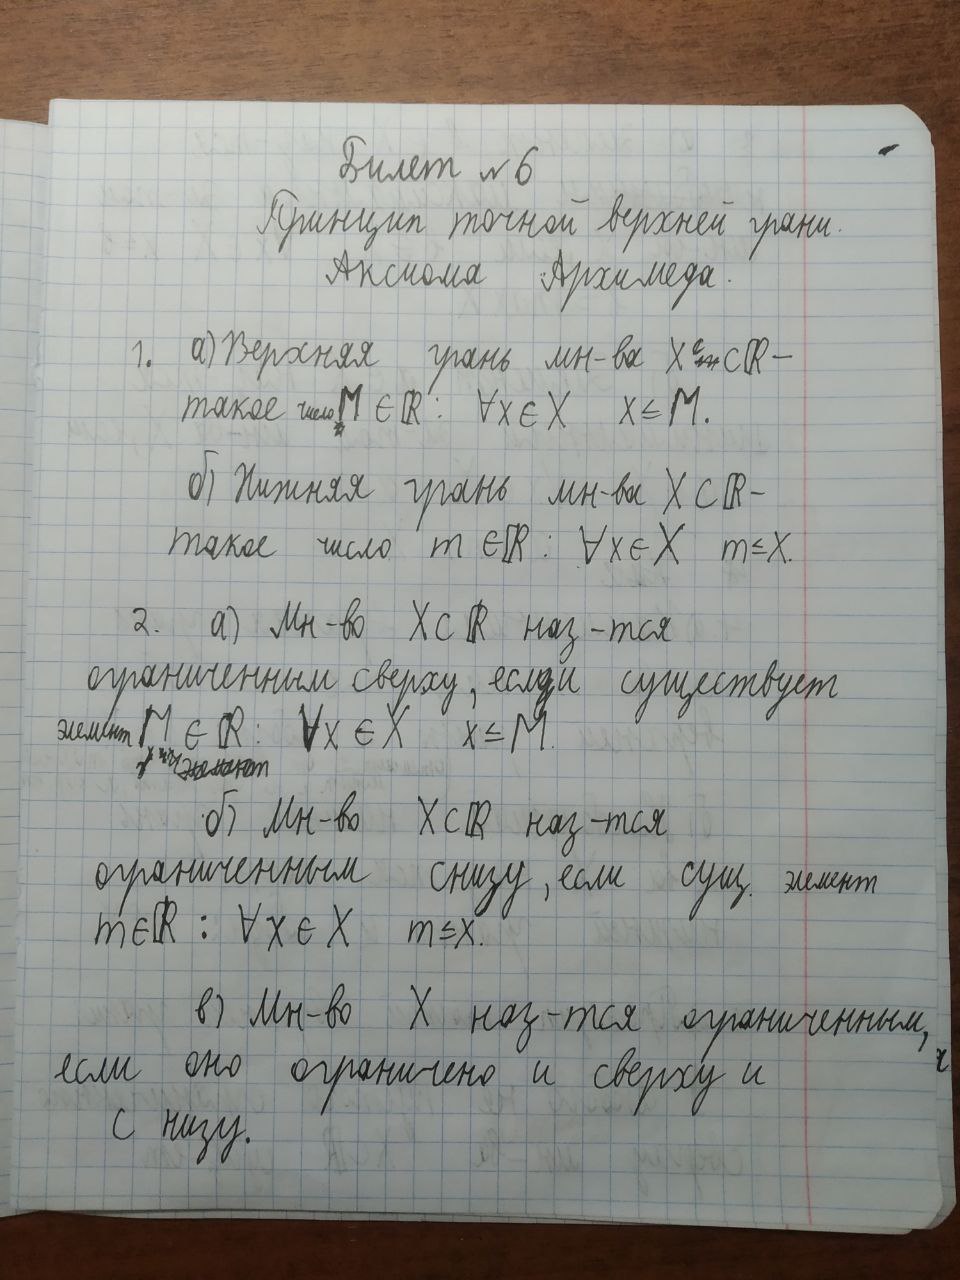 Билет №6
Принцип точной верхней грани.
Аксиома Архимеда.
1. а) Верхняя грань мн-ва X⊂ℝ –
такое число M∈ℝ: ∀x∈X x≤M.
б) Нижняя грань мн-ва X⊂ℝ –
такое число m∈ℝ: ∀x∈X m≤x.
2. а) Мн-во X⊂ℝ наз-тся
ограниченным сверху, если существует
элемент M∈ℝ: ∀x∈X x≤M.
б) Мн-во X⊂ℝ наз-тся
ограниченным снизу, если сущ. элемент
m∈ℝ: ∀x∈X m≤x.
в) Мн-во X наз-тся ограниченным,
если оно ограничено и сверху и
с низу.